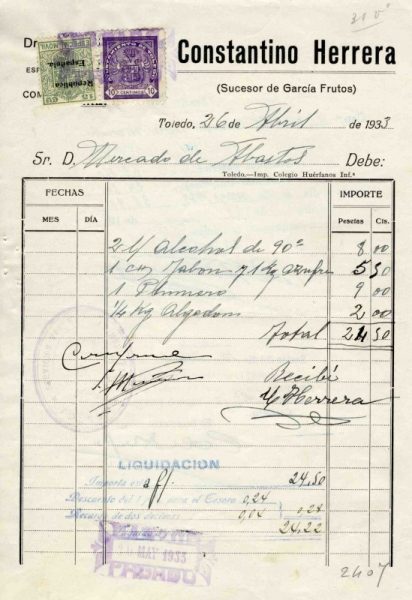 31 Vº
Dr
Constantino Herrera
ESP
(Sucesor de García Frutos)
COM
República Española
ESPECIAL MOVIL
15 CTS
10 CENTIMOS 10
Toledo, 26 de Abril de 1933
Sr. D. Mercado de Abastos Debe:
Toledo.—Imp. Colegio Huérfanos Inf.ª
FECHAS IMPORTE
MES DÍA Pesetas Cts.
2 Alcohol de 90º 8 00
1 Jabon y 1 Kg azufre 5 50
1 Plumero 9 00
1/4 Kg Algodon 2 00
Total 24 50
Conforme
Recibí
Herrera
LIQUIDACION
Importa 24,50
Descuento del 1 para el Tesoro 0,24
Recargo de dos décimas 0,04 0,28
24,22
MAY 1933
PAGADO
2407